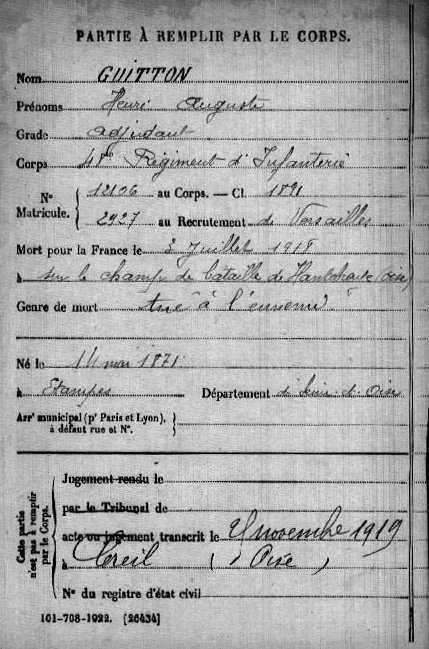 PARTIE À REMPLIR PAR LE CORPS.
Nom GUITTON
Prénoms Henri Auguste
Grade adjudant
Corps 48e Régiment d'Infanterie
N° Matricule. 12106 au Corps. — Cl. 1891
2927 au Recrutement de Versailles
Mort pour la France le 3 Juillet 1918
à sur le champ de bataille de (Oise)
Genre de mort tué à l'ennemi
Né le 14 mai 1871
à Etampes Département Seine et Oise
Arrt municipal (pr Paris et Lyon),
à défaut rue et N°.
Cette partie n'est pas à remplir par le Corps.
Jugement rendu le
par le Tribunal de
acte ou jugement transcrit le novembre 1919
à Creil (Oise)
N° du registre d'état civil
101-708-1922. [26434]